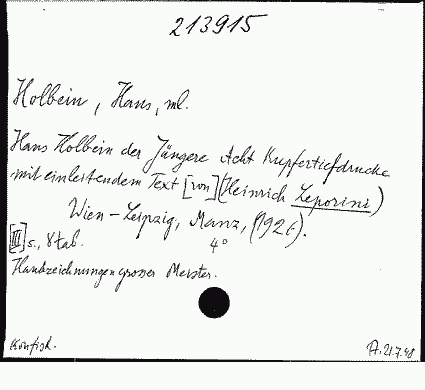 213915
Holbein, Hans, ml.
Hans Holbein der Jüngere Acht Kupfertiefdrucke
mit einleitendem Text [von] (Heinrich Leporini)
Wien-Leipzig, Manz, (1926).
[III] s., 8 tab. 4°
Handzeichnungen grosser Meister.
Konfisk.
21.7.48